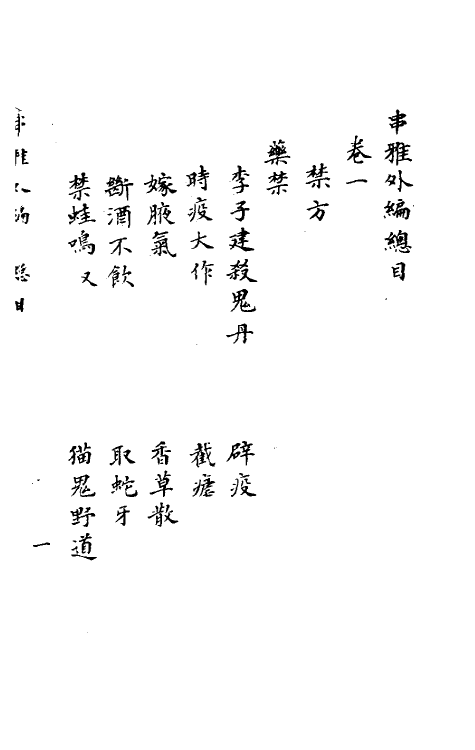 串雅外編總目
卷一
禁方
藥禁
李子建殺鬼丹　辟疫
時疫大作　截瘧
嫁腋氣　香草散
斷酒不飲　取蛇牙
禁蛙鳴又　猫鬼野道
一